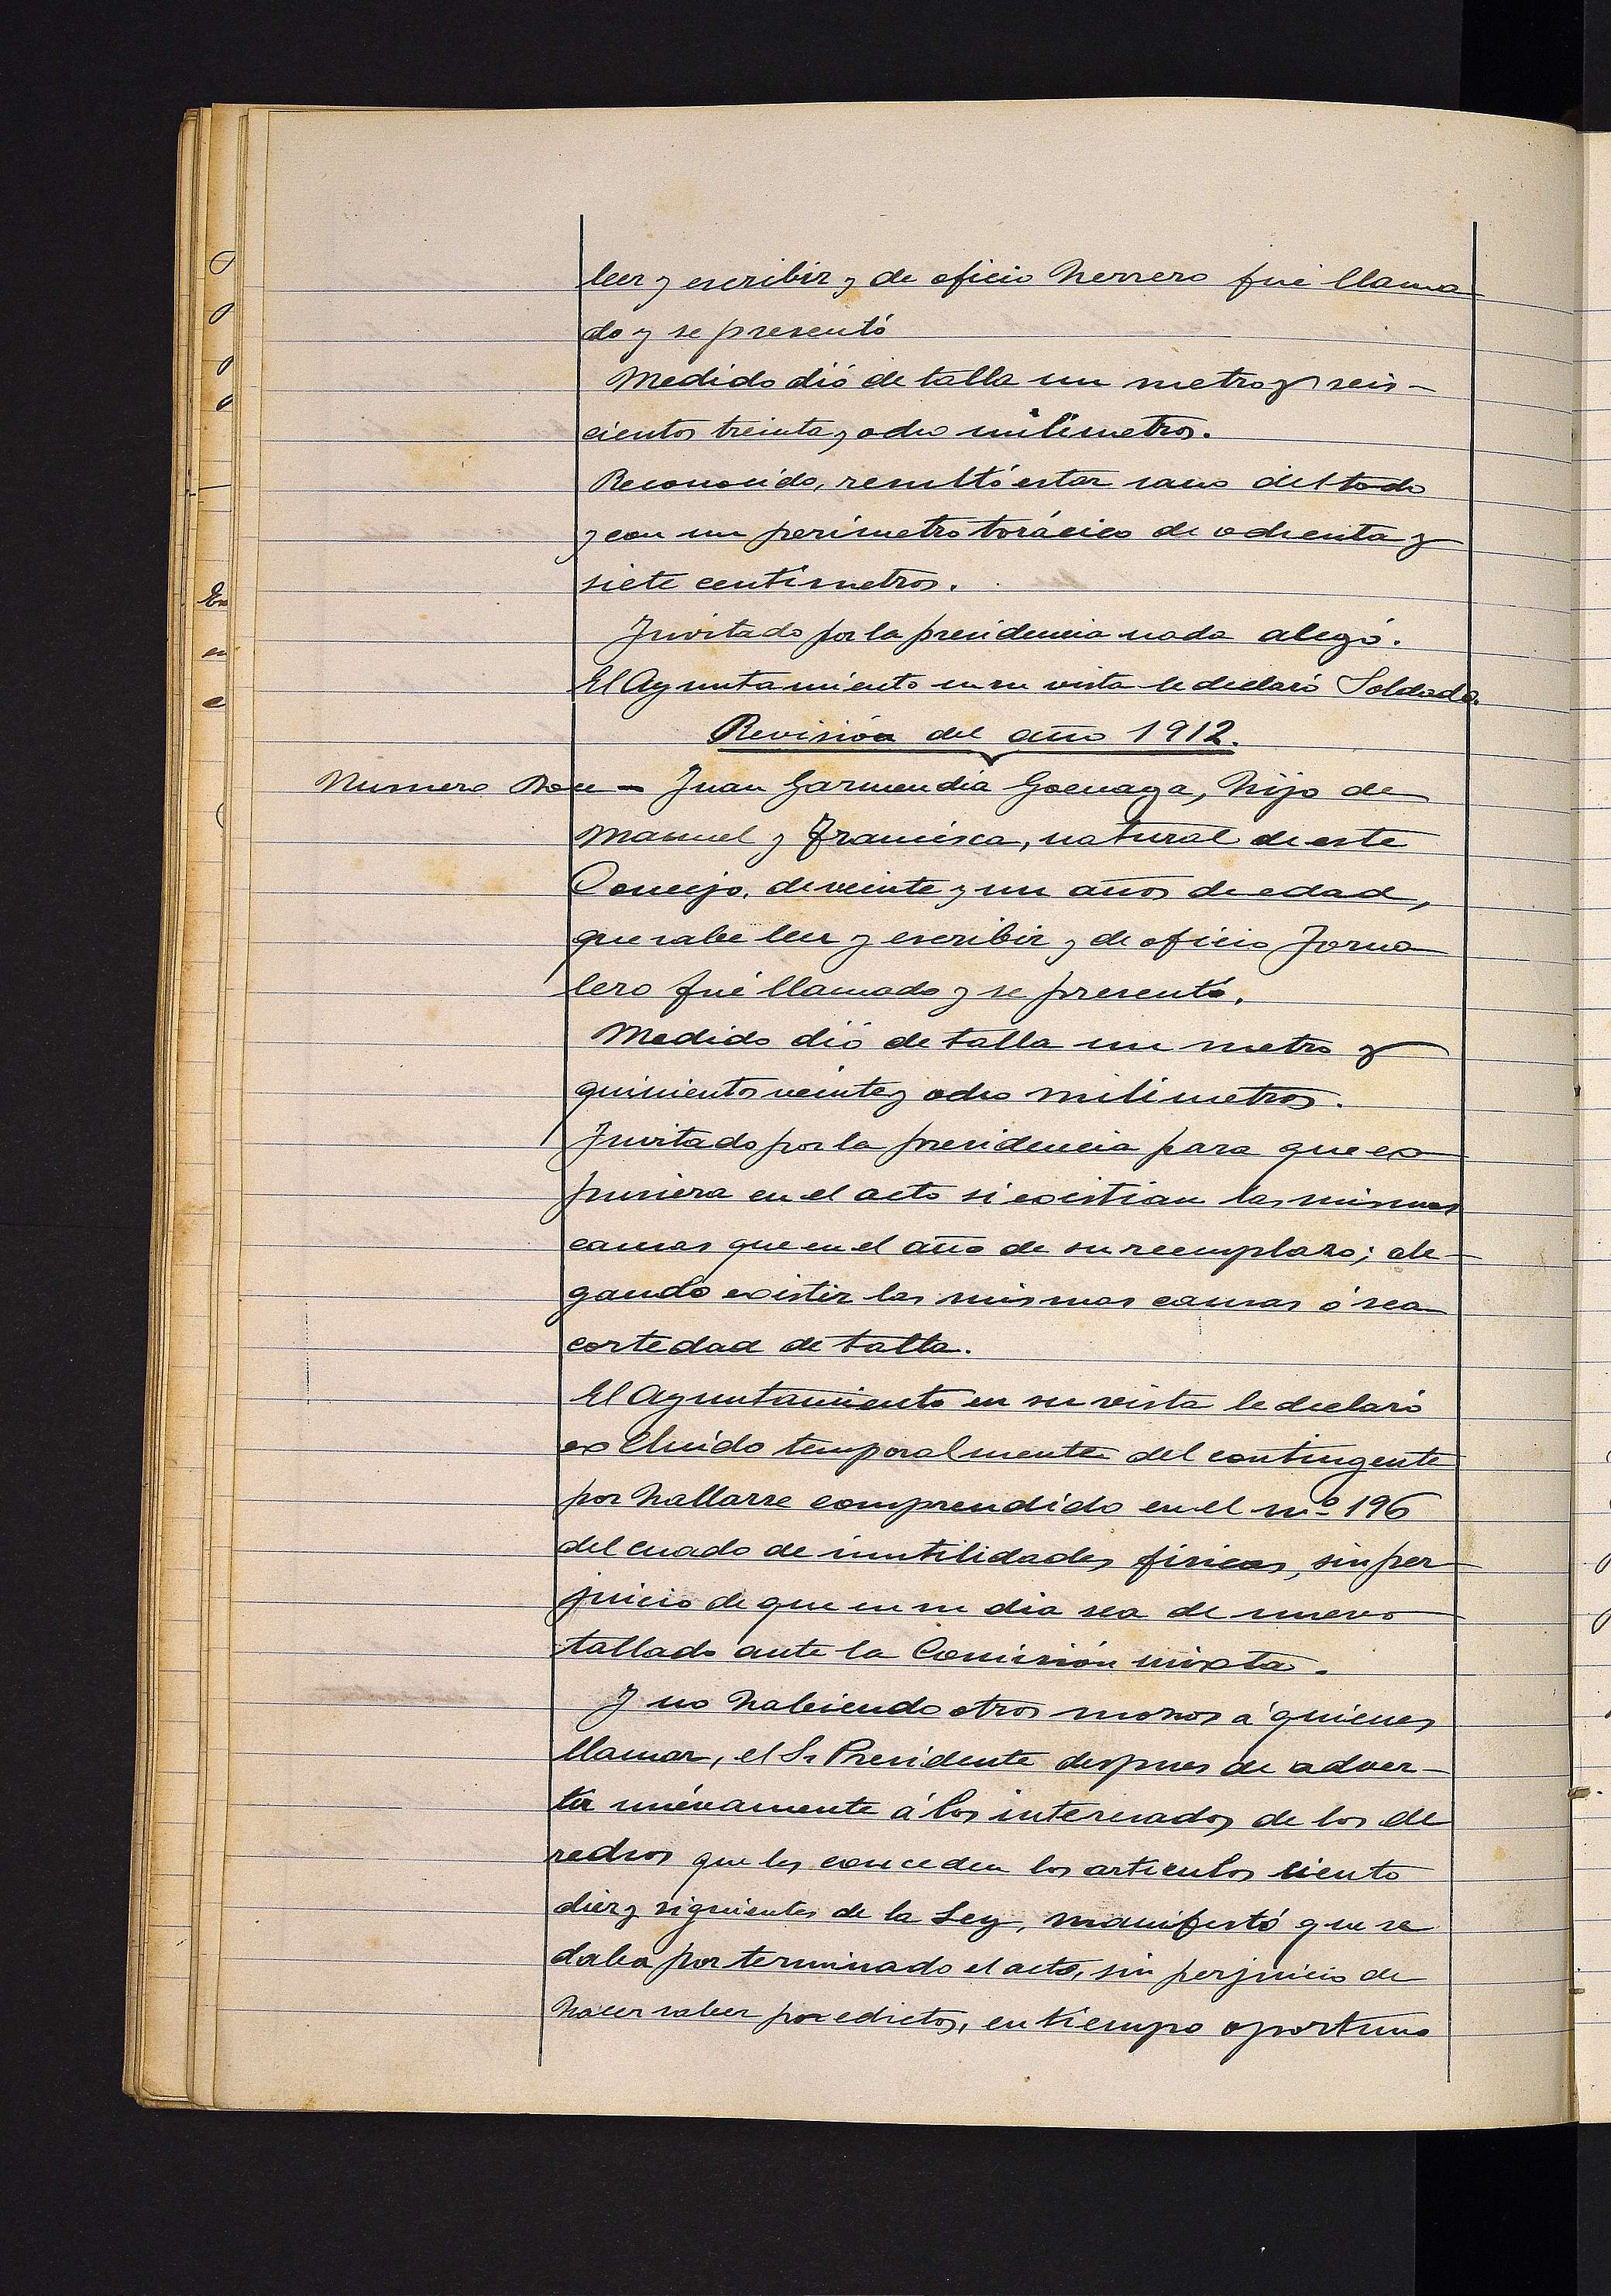 leer y escribir y de oficio herrero fué llama
do y se presentó
Medido dió de talla un metro y seis-
cientos treinta y ocho milimetros.
Reconocido, resultó estar sano del todo
y con un perímetro torácico de ochenta y
siete centímetros.
Invitado por la presidencia nada alegó.
El Ayuntamiento en su vista le declaró Soldado.
Revisión del año 1912.
Numero Doce - Juan Garmendia Goenaga, hijo de
Manuel y Francisca, natural de este
Concejo, de veinte y un años de edad,
que sabe leer y escribir y de oficio Jorna
lero fué llamado y se presentó.
Medido dió de talla un metro y
quinientos veinte y ocho milimetros.
Invitado por la presidencia para que ex
pusiera en el acto si existian las mismas
causas que en el año de su reemplazo; ale-
gando existir las mismas causas ó sea
cortedad de talla.
El Ayuntamiento en su vista le declaró
excluido temporalmente del contingente
por hallarse comprendido en el nº 196
del cuado de inutilidades fisicas, sin per
juicio de que en su dia sea de nuevo
tallado ante la Comisión mixta.
Y no habiendo otros mozos á quienes
llamar, el Sr Presidente despues de adver-
tir nuévamente á los interesados de los de
rechos que les conceden los articulos ciento
diez y siguientes de la Ley, manifestó que se
daba por terminado el acto, sin perjuicio de
hacer saber por edictos, en tiempo oportuno